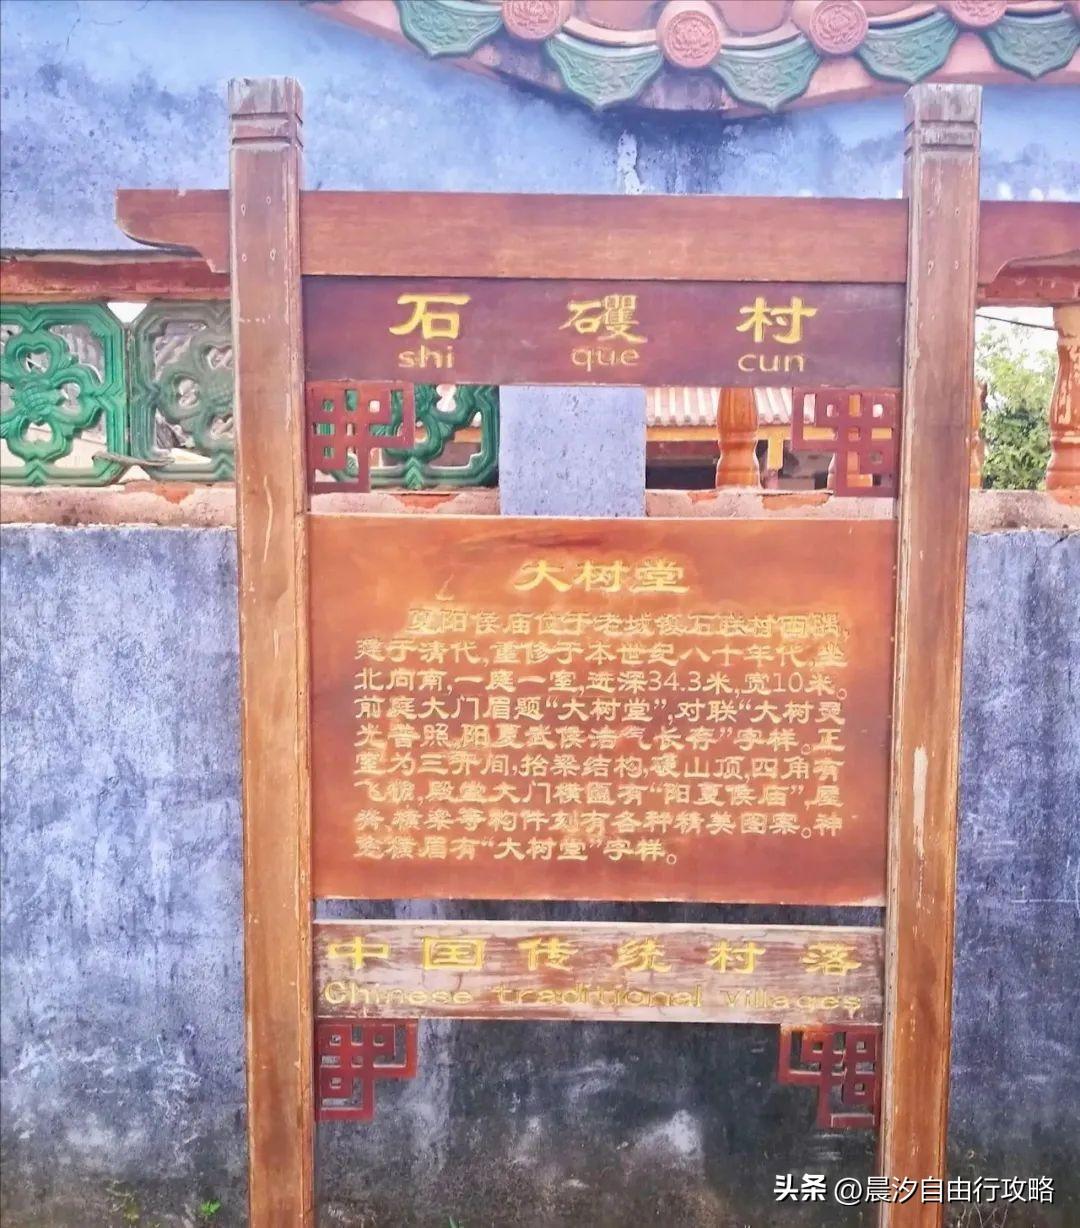 石 礐 村
shi que cun
大树堂
夏阳侯庙位于老城镇石联村西隅,
建于清代,重修于本世纪八十年代,坐
北向南,一庭一室,进深34.3米,宽10米。
前庭大门眉题“大树堂”,对联“大树灵
光普照,阳夏武侯浩气长存”字样。正
室为三开间,抬梁结构,硬山顶,四角有
飞檐,殿堂大门横匾有“阳夏侯庙”,屋
脊、横梁等构件刻有各种精美图案。神
龛横眉有“大树堂”字样。
中国传统村落
Chinese traditional villages
头条 @晨汐自由行攻略